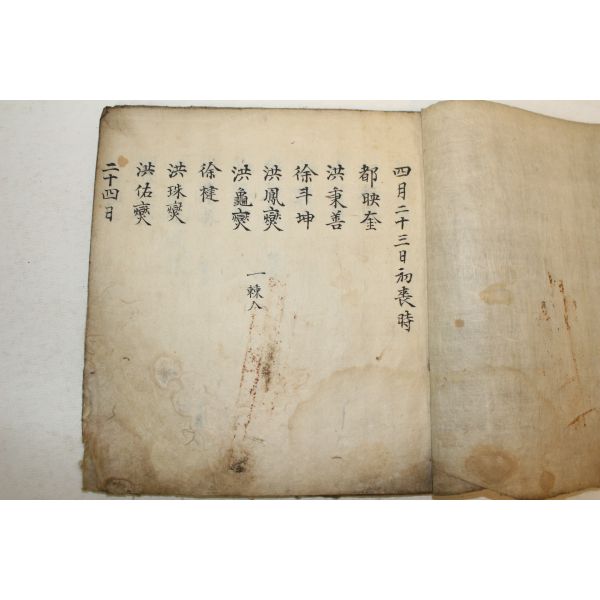 四月二十三日初喪時
都映奎
洪秉善
徐斗坤
洪鳳燮
洪龜燮
一棘人
徐楗
洪珠燮
洪佑燮
二十四日